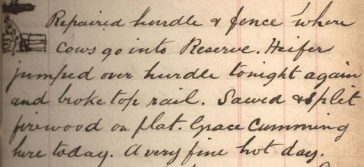 Repaired hurdle & fence where
cows go into Reserve. Heifer
jumped over hurdle tonight again
and broke top rail. Sawed & split
firewood on flat. Grace Cumming
here today. A very fine hot day.